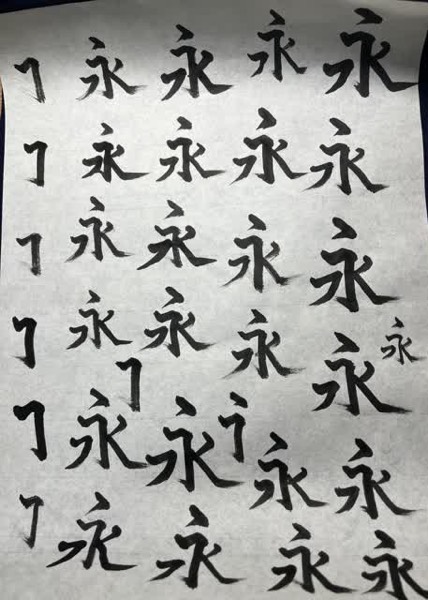 永 永 永 永
永 永 永 永
永 永 永 永
永 永 永 永 永
永 永 永 永
永 永 永 永